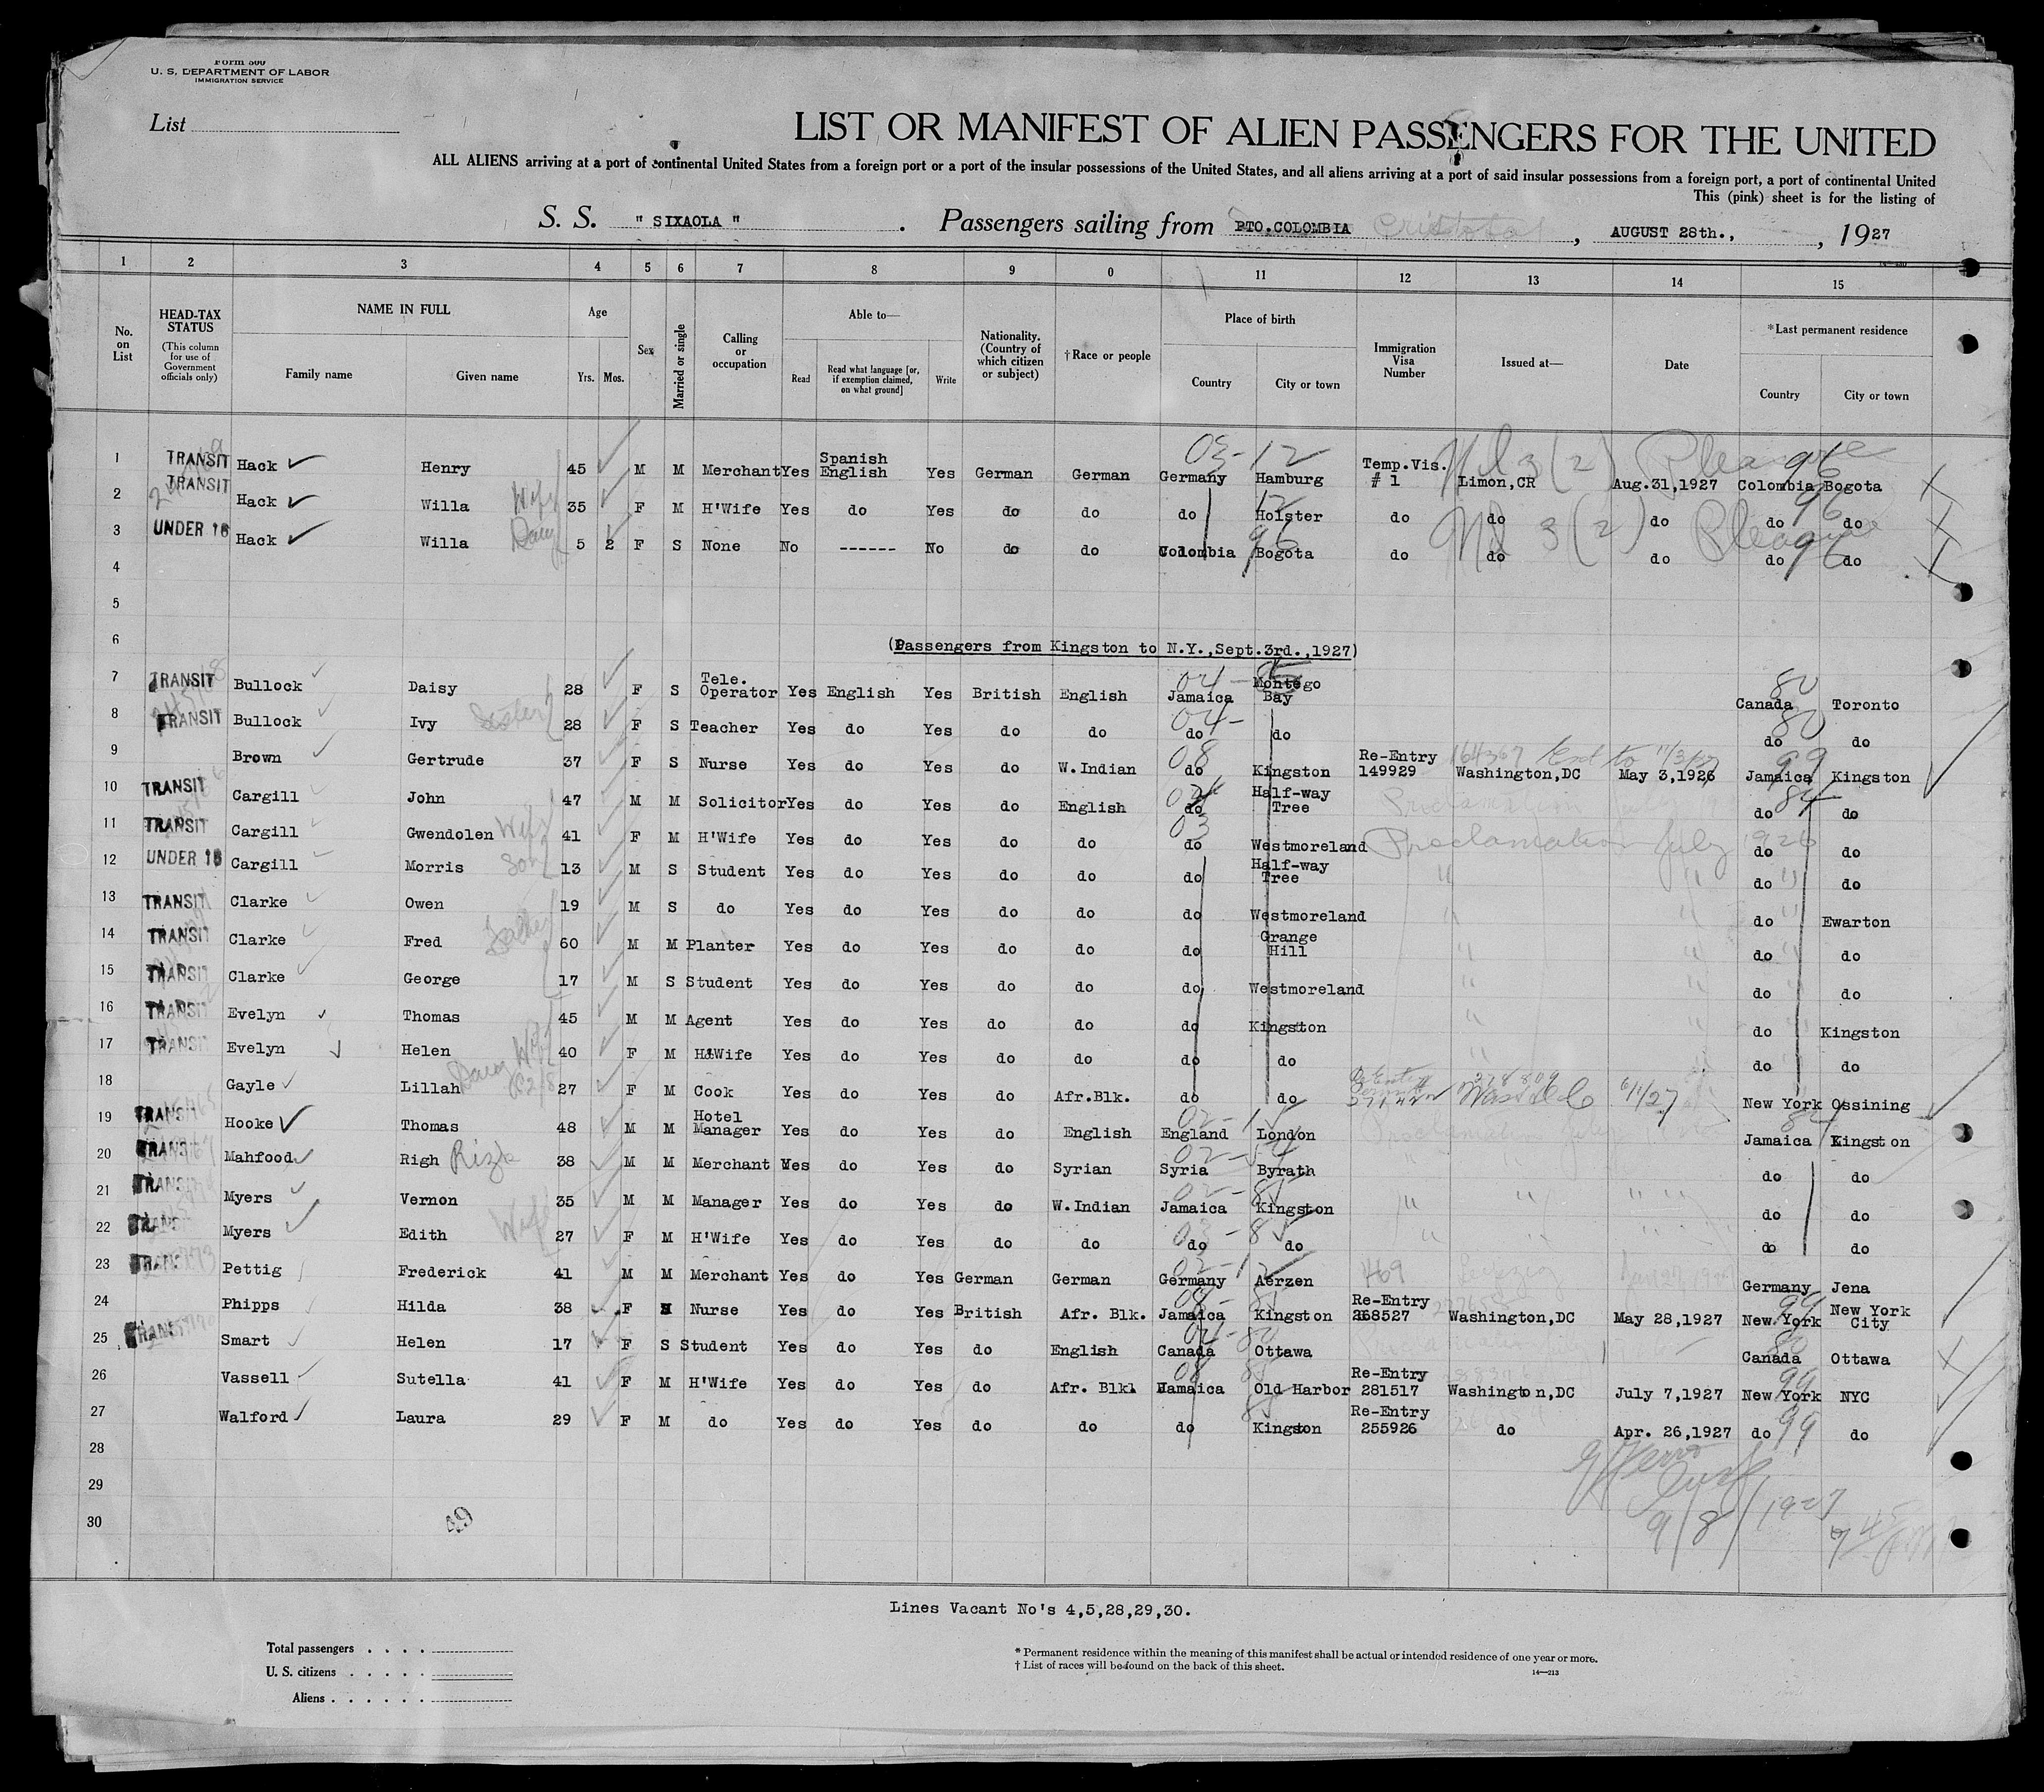 Form 500
U. S. DEPARTMENT OF LABOR
IMMIGRATION SERVICE
List
LIST OR MANIFEST OF ALIEN PASSENGERS FOR THE UNITED
ALL ALIENS arriving at a port of continental United States from a foreign port or a port of the insular possessions of the United States, and all aliens arriving at a port of said insular possessions from a foreign port, a port of continental United
This (pink) sheet is for the listing of
S. S. " SIXAOLA " . Passengers sailing from PTO.COLOMBIA Cristobal , AUGUST 28th., , 1927
1 2 3 4 5 6 7 8 9 0 11 12 13 14 15
No. on List HEAD-TAX STATUS (This column for use of Government officials only) NAME IN FULL Family name Given name Age Yrs. Mos. Sex Married or single Calling or occupation Able to— Read Read what language [or, if exemption claimed, on what ground] Write Nationality. (Country of which citizen or subject) †Race or people Place of birth Country City or town Immigration Visa Number Issued at— Date *Last permanent residence Country City or town
1 TRANSIT Hack Henry 45 M M Merchant Yes Spanish English Yes German German Germany Hamburg Temp.Vis. # 1 Limon,CR Aug.31,1927 Colombia Bogota
2 TRANSIT Hack Willa Wife 35 F M H'Wife Yes do Yes do do do Holster do do do do do
3 UNDER 16 Hack Willa Daug 5 2 F S None No ------ No do do Colombia Bogota do do do do do
4
5
6 (Passengers from Kingston to N.Y.,Sept.3rd.,1927)
7 TRANSIT Bullock Daisy 28 F S Tele. Operator Yes English Yes British English Jamaica Montego Bay Canada Toronto
8 TRANSIT Bullock Ivy Sister 28 F S Teacher Yes do Yes do do do do do do
9 Brown Gertrude 37 F S Nurse Yes do Yes do W.Indian do Kingston Re-Entry 149929 Washington,DC May 3,1926 Jamaica Kingston
10 TRANSIT Cargill John 47 M M Solicitor Yes do Yes do English do Half-way Tree do do
11 TRANSIT Cargill Gwendolen Wife 41 F M H'Wife Yes do Yes do do do Westmoreland Proclamation July 1926 do do
12 UNDER 16 Cargill Morris Son 13 M S Student Yes do Yes do do do Half-way Tree " " do do
13 TRANSIT Clarke Owen 19 M S do Yes do Yes do do do Westmoreland " " do Ewarton
14 TRANSIT Clarke Fred Father 60 M M Planter Yes do Yes do do do Grange Hill " " do do
15 TRANSIT Clarke George 17 M S Student Yes do Yes do do do Westmoreland " " do do
16 TRANSIT Evelyn Thomas 45 M M Agent Yes do Yes do do do Kingston " " do Kingston
17 TRANSIT Evelyn Helen Wife 40 F M H'Wife Yes do Yes do do do do " do do
18 Gayle Lillah 27 F M Cook Yes do Yes do Afr.Blk. do do New York Ossining
19 TRANSIT Hooke Thomas 48 M M Hotel Manager Yes do Yes do English England London Jamaica Kingston
20 TRANSIT Mahfood Righ Rizk 38 M M Merchant Yes do Yes do Syrian Syria Byrath do do
21 TRANSIT Myers Vernon 35 M M Manager Yes do Yes do W.Indian Jamaica Kingston " " " " do do
22 TRANSIT Myers Edith Wife 27 F M H'Wife Yes do Yes do do do do do do
23 TRANSIT Pettig Frederick 41 M M Merchant Yes do Yes German German Germany Aerzen 469 Leipzig Germany Jena
24 Phipps Hilda 38 F Nurse Yes do Yes British Afr. Blk. Jamaica Kingston Re-Entry 268527 Washington,DC May 28,1927 New York New York City
25 TRANSIT Smart Helen 17 F S Student Yes do Yes do English Canada Ottawa Canada Ottawa
26 Vassell Sutella 41 F M H'Wife Yes do Yes do Afr. Blk. Jamaica Old Harbor Re-Entry 281517 Washington,DC July 7,1927 New York NYC
27 Walford Laura 29 F M do Yes do Yes do do do Kingston Re-Entry 255926 do Apr. 26,1927 do do
28
29
30
9/8/1927
Lines Vacant No's 4,5,28,29,30.
Total passengers . . . .
U. S. citizens . . . . .
Aliens . . . . . .
* Permanent residence within the meaning of this manifest shall be actual or intended residence of one year or more.
† List of races will be found on the back of this sheet.
14—213